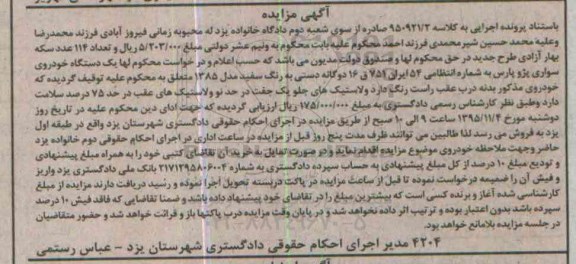 آگهی مزایده
باستناد پرونده اجرایی به کلاسه ۹۵۰۹۲۱/۳ صادره از سوی شعبه دوم دادگاه خانواده یزد له محبوبه زمانی فیروز آبادی فرزند محمدرضا
وعلیه محمد حسین شیرمحمدی فرزند احمد محکوم علیه بابت محکوم به ونیم عشر دولتی مبلغ ۵/۲۰۳/۰۰۰ ریال و تعداد ۱۱۴ عدد سکه
بهار آزادی طرح جدید در حق محکوم لها و صندوق دولت مدیون می باشد که حسب اعلام و در خواست محکوم لها یک دستگاه خودروی
سواری پژو پارس به شماره انتظامی ۵۴ ایران ۷۵۱ ق ۱۶ دوگانه دستی به رنگ سفید مدل ۱۳۸۵ متعلق به محکوم علیه توقیف گردیده که
خودروی مذکور بدنه درب عقب راست رنگ دارد ولاستیک های جلو یک جفت در حد نو ولاستیک های عقب در حد ۷۵ درصد سلامت
دارد وطبق نظر کارشناس رسمی دادگستری به مبلغ ۱۷۵/۰۰۰/۰۰۰ ریال ارزیابی گردیده که جهت ادای دین محکوم علیه در تاریخ روز
دوشنبه مورخ ۱۳۹۵/۱۱/۴ ساعت ۹ الی ۱۰ صبح از طریق مزایده در اجرای احکام حقوقی دادگستری شهرستان یزد واقع در طبقه اول
یزد به فروش می رسد لذا طالبین می توانند ظرف مدت پنج روز قبل از مزایده در ساعت اداری در اجرای احکام حقوقی دوم خانواده یزد
حاضر وجهت ملاحظه خودروی موضوع مزایده اقدام نماید و در صورت تمایل به خرید آن تقاضای کتبی خود را به همراه مبلغ پیشنهادی
و تودیع مبلغ ۱۰ درصد از کل مبلغ پیشنهادی به حساب سپرده دادگستری به شماره ۲۱۷۱۲۹۵۸۰۶۰۰۴ بانک ملی دادگستری یزد واریز
و فیش آن را ضمیمه درخواست نموده تا قبل از ساعت مزایده در پاکت دربسته تحویل اجرا نموده و رسید دریافت دارند مزایده از مبلغ
کارشناسی شده آغاز و برنده کسی است که بیشترین مبلغ را در تقاضای خود پیشنهاد داده باشد و ضمنا تقاضایی که فاقد فیش ۱۰ درصد
سپرده باشد بدون اعتبار بوده و ترتیب اثر داده نخواهد شد و در پایان وقت مزایده درب پاکتها باز و قرائت خواهد شد و حضور متقاضیان
در جلسه مزایده بلامانع خواهد بود.
۴۲۰۴ مدیر اجرای احکام حقوقی دادگستری شهرستان یزد – عباس رستمی